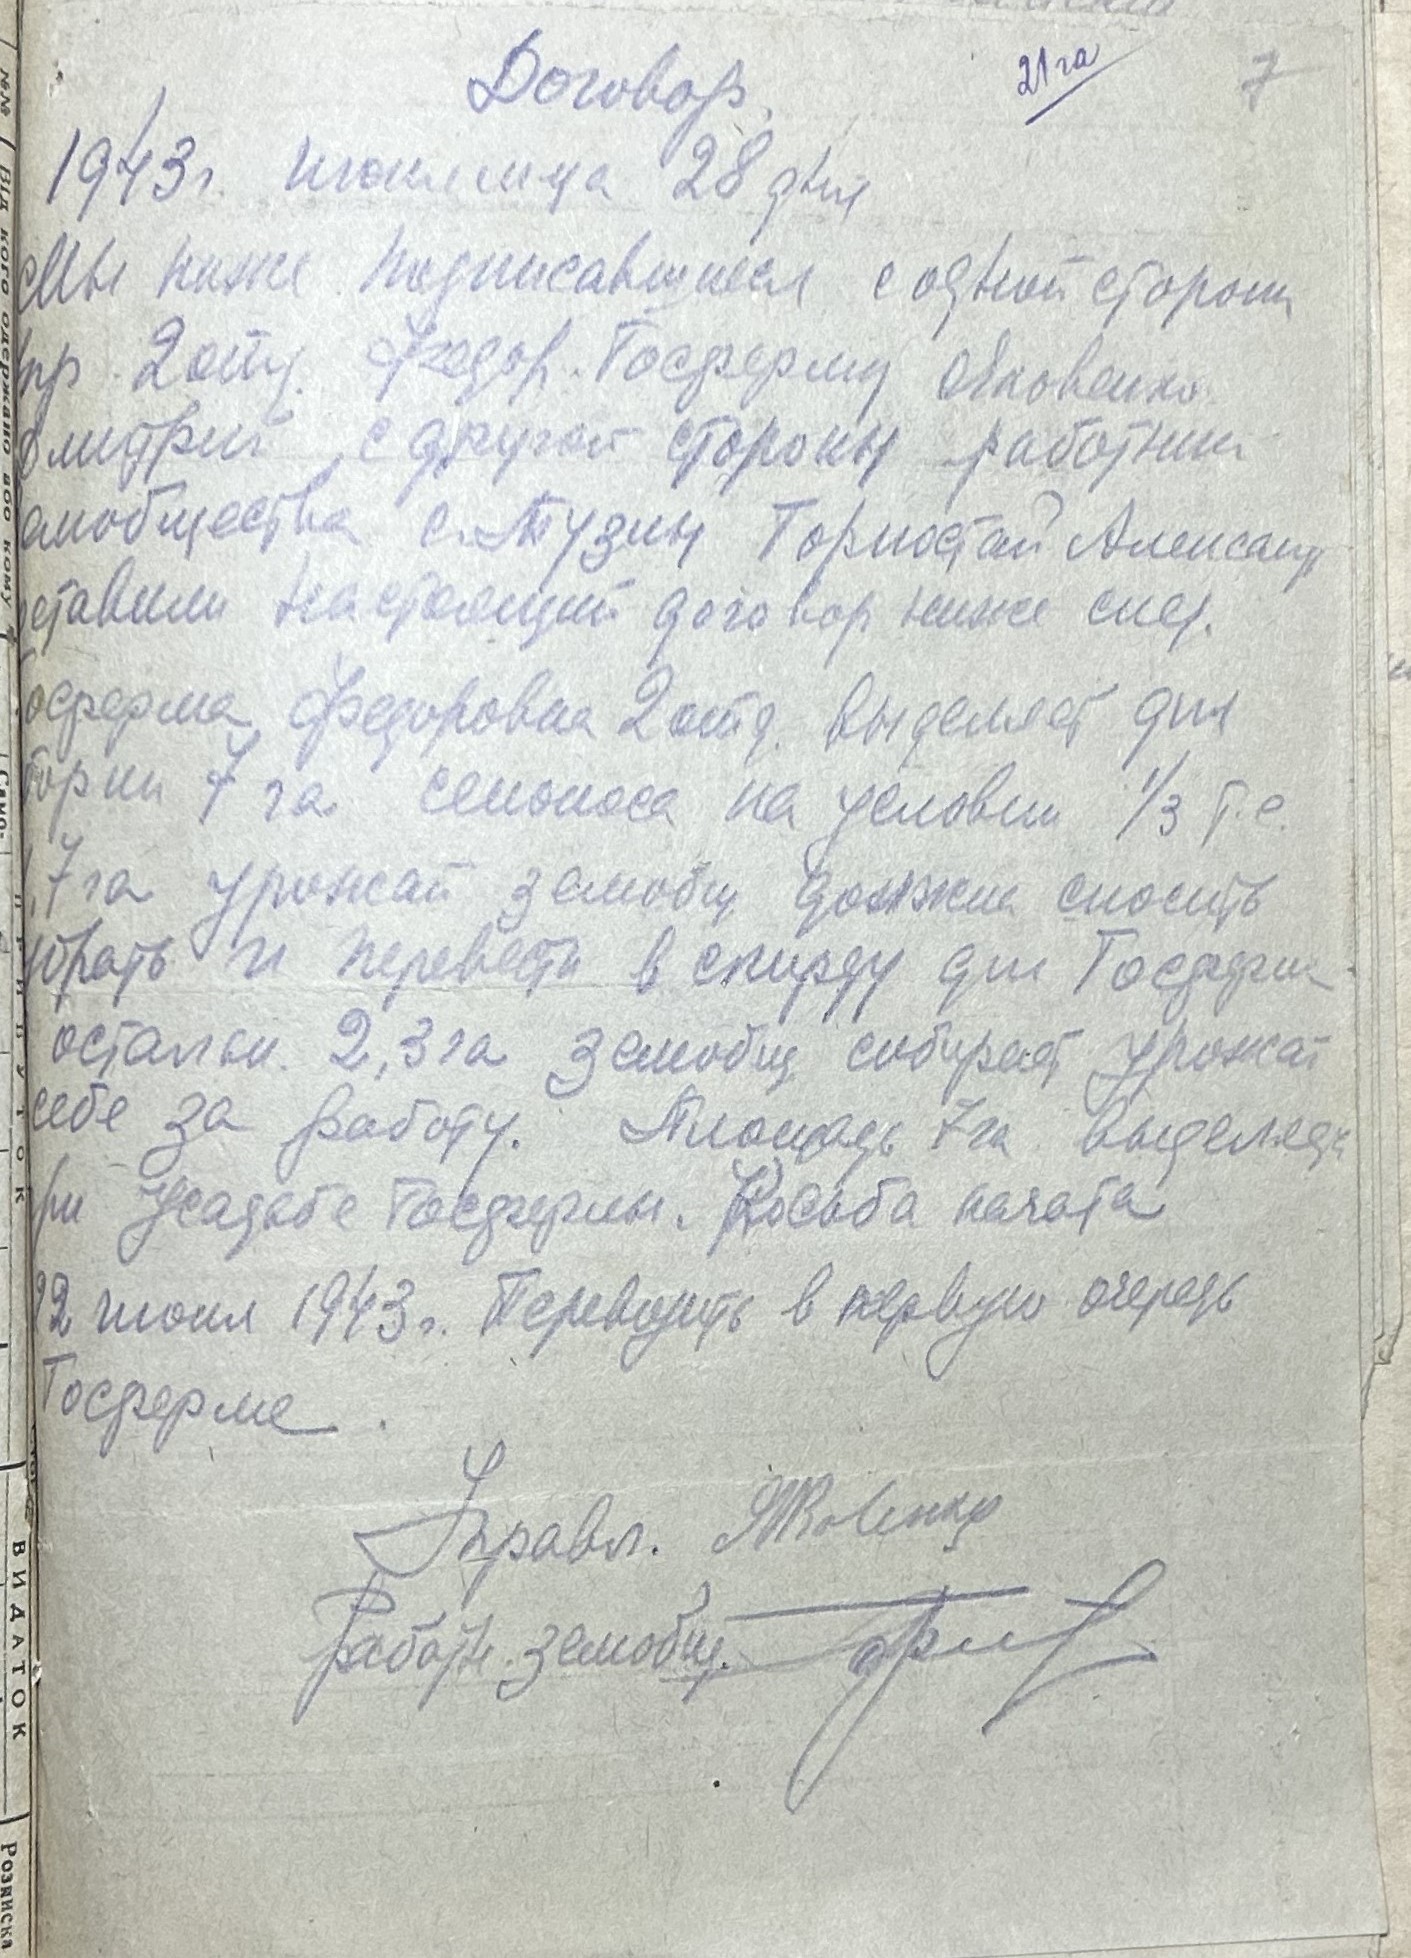 21га
7
Договор.
1943г. июля м-ца 28 дня
Мы ниже подписавшиеся с одной стороны
пр. 2 отд. Федор. Госферму Яковенко
Дмитрий с другой стороны работник
емобщества с. Тузлы Горностай Александр
ставили настоящий договор ниже след.
осферма Федоровка 2 отд. выделяет для
7 га сенокоса на условии 1/3 т.е.
,7 га урожай земобщ должна скосить
убрать и перевезти в скирду для Госферм
остальн. 2,3 га земобщ собирает урожай
себе за работу. Площадь 7 га выделяед
ри усадьбе Госфермы. Косьба начата
22 июля 1943г. Перевозить в первую очередь
Госферме.
Управл. Яковенко
Работн. земобщ.
ВІД КОГО ОДЕРЖАНО АБО КОМУ
ПРИБУТОК
ВИДАТОК
Розписка